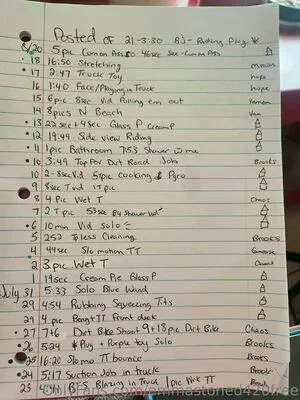 Posted OF 21-3:30 BJ- Riding Plug *
8/20 5pic Cum on Ass 46sec Sex-Cum on Ass
18 16:50 Stretching
17 2:47 Truck Toy hope
16 1:40 Face/Playing in Truck hope
15 6pic 8sec Vid Pulling em out
14 8pics N Beach Van
13 22sec+45ec Glass P CreamP
12 19:49 Side view Riding
11 1pic Bathroom 7:53 Shower w me
10 3:49 Top For Dirt Road Jobs Brooks
10 2-8sec Vid 5pic Cooking & Pyro
9 8sec T vid 1 T pic
8 4 Pic Wet T Chaos
7 2 T pic 53sec BJ Shower Vid
6 10min Vid Solo
5 252 Topless Cleaning Brooks
4 44sec Slo motion TT
2 3pic Wet T
1 19sec Cream Pie Glass P
July 31 5:33 Solo Blue Wind
29 4:54 Rubbing Squeezing Tits
29 4 pic Pong TT Front deck
27 7+6 Dirt Bike Shoot 9+18pic Dirt Bike Chaos
26 5:24 *Plug + Purple toy Solo Brooks
25 16:20 Slo mo TT bounce Brooks
24 5:17 Suction Job in truck Brooks
25 BFS Blazing in Truck 1pic Wet TT